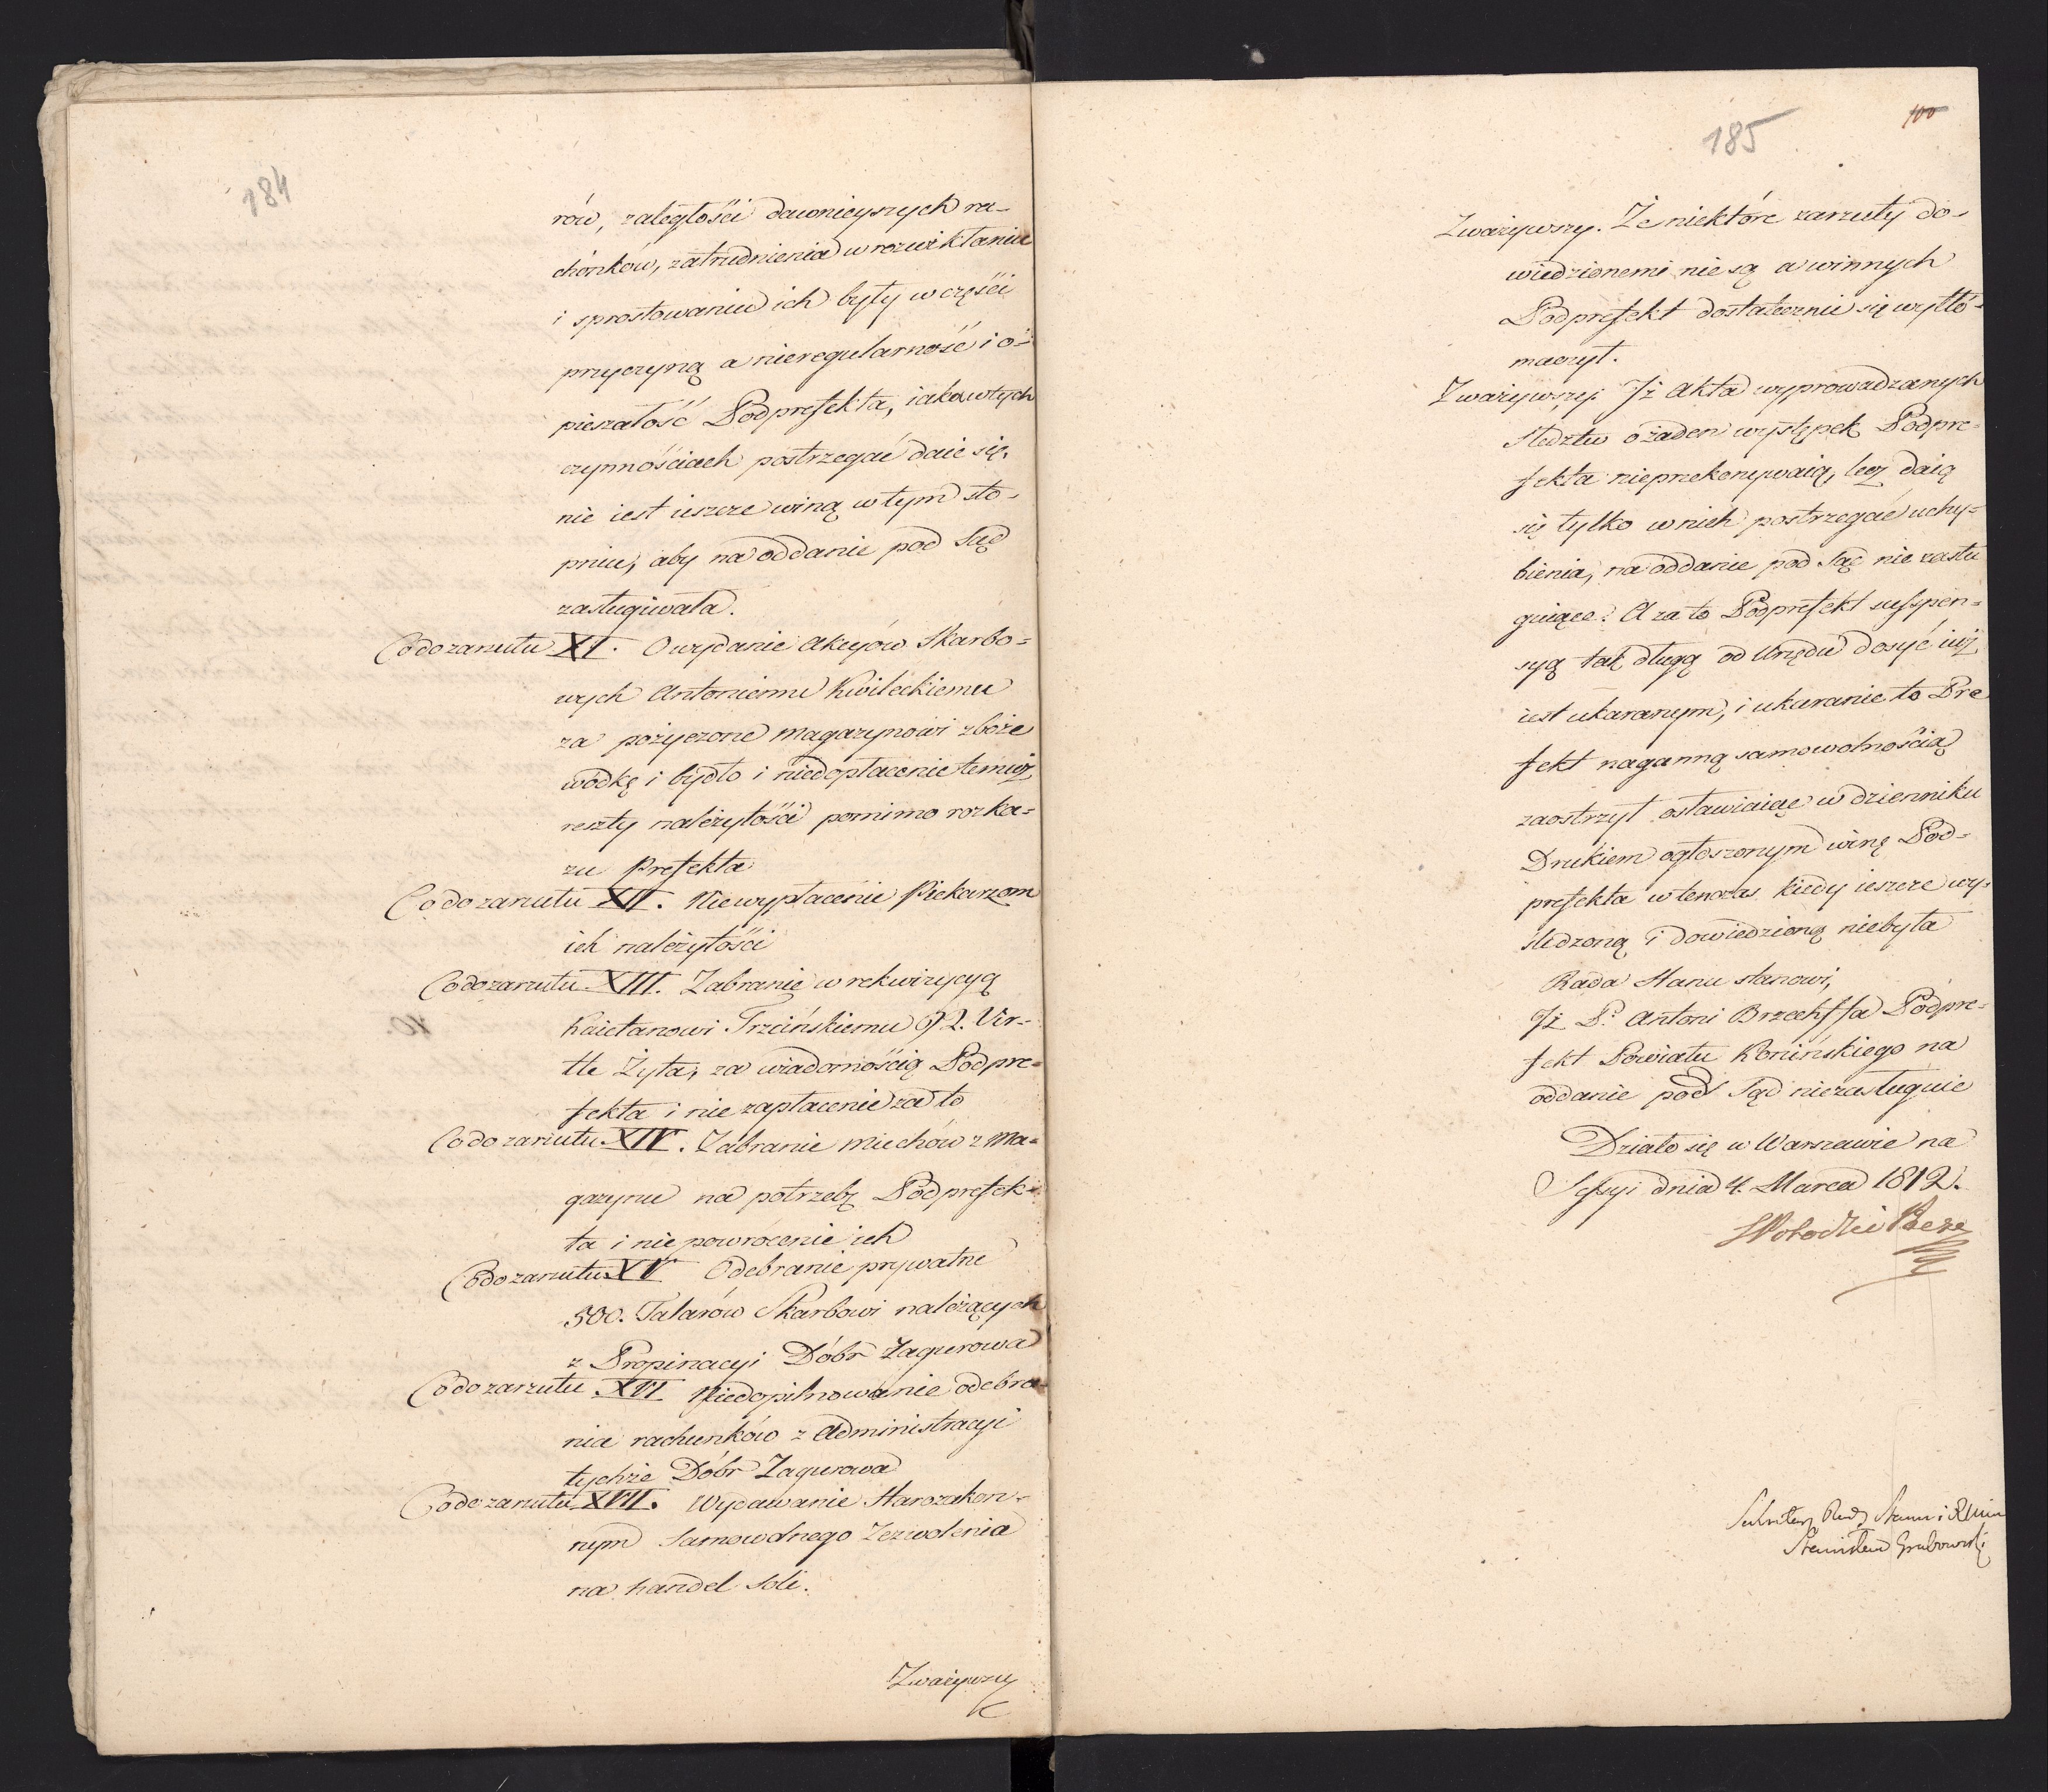 184
rów, zaległości dawnieyszych ra-
chónków, zatrudnienia w rozwikłaniu
i sprostowaniu ich były w części
przyczyną a nieregularność i o-
pieszałość Podprefekta, iaka w tych
czynnościach postrzegać daie się,
nie iest ieszcze winą w tym sto-
pniu, aby na oddanie pod Sąd
zasługiwała.
Co do zarzutu XI. O wydanie Akcyów Skarbo=
wych Antoniemu Kwileckiemu
za pożyczone magazynowi zboże
wódkę i bydło i niedopłacenie temuż
reszty należytości pomimo rozka=
zu Prefekta
Co do zarzutu XII. Niewypłacenie Piekarzom
ich należytości
Co do zarzutu XIII. Zabranie w rekwizycyą
Kaietanowi Trzcińskiemu 92. Vir-
tle Żyta, za wiadomością Podpre=
fekta i nie zapłacenie za to
Co do zarzutu XIV. Zabranie miechów z Ma=
gazynu na potrzebę Podprefek=
ta i nie powrócenie ich
Co do zarzutu XV Odebranie prywatne
300. Talarów Skarbowi należących
z Propinacyi Dóbr Zagurowa
Co do zarzutu XVI Niedopilnowanie odebra-
nia rachunków z Administracyi
tychże Dóbr Zagurowa
Co do zarzutu XVII. Wydawanie Starozakon-
nym samowolnego Zezwolenia
na handel Soli.
Zważywszy
185
100
Zważywszy. Że niektóre zarzuty do-
wiedzionemi nie są a w innych
Podprefekt dostatecznie się wytłó-
maczył.
Zważywszy. Iż Akta wyprowadzanych
śledztw o żaden występek Podpre=
fekta nieprzekonywaią, lecz daią
się tylko w nich postrzegać uchy=
bienia, na oddanie pod Sąd nie zasłu
guiące: A za to Podprefekt suspen=
syą tak długą od Urzędu dosyć iuż
iest ukaranym, i ukaranie to Pre
fekt naganną samowolnością
zaostrzył ostawiaiąc w dzienniku
Drukiem ogłoszonym winę Pod=
prefekta wtenczas kiedy ieszcze wy-
śledzoną i dowiedzioną niebyła
Rada Stanu stanowi,
Iż P. Antoni Brzechffa Podpre-
fekt Powiatu Konińskiego na
oddanie pod Sąd niezasługuie
Działo się w Warszawie na
Sessyi dnia 4. Marca 1812.
Sekretarz Rady Stanu i
Stanisław Grabowski